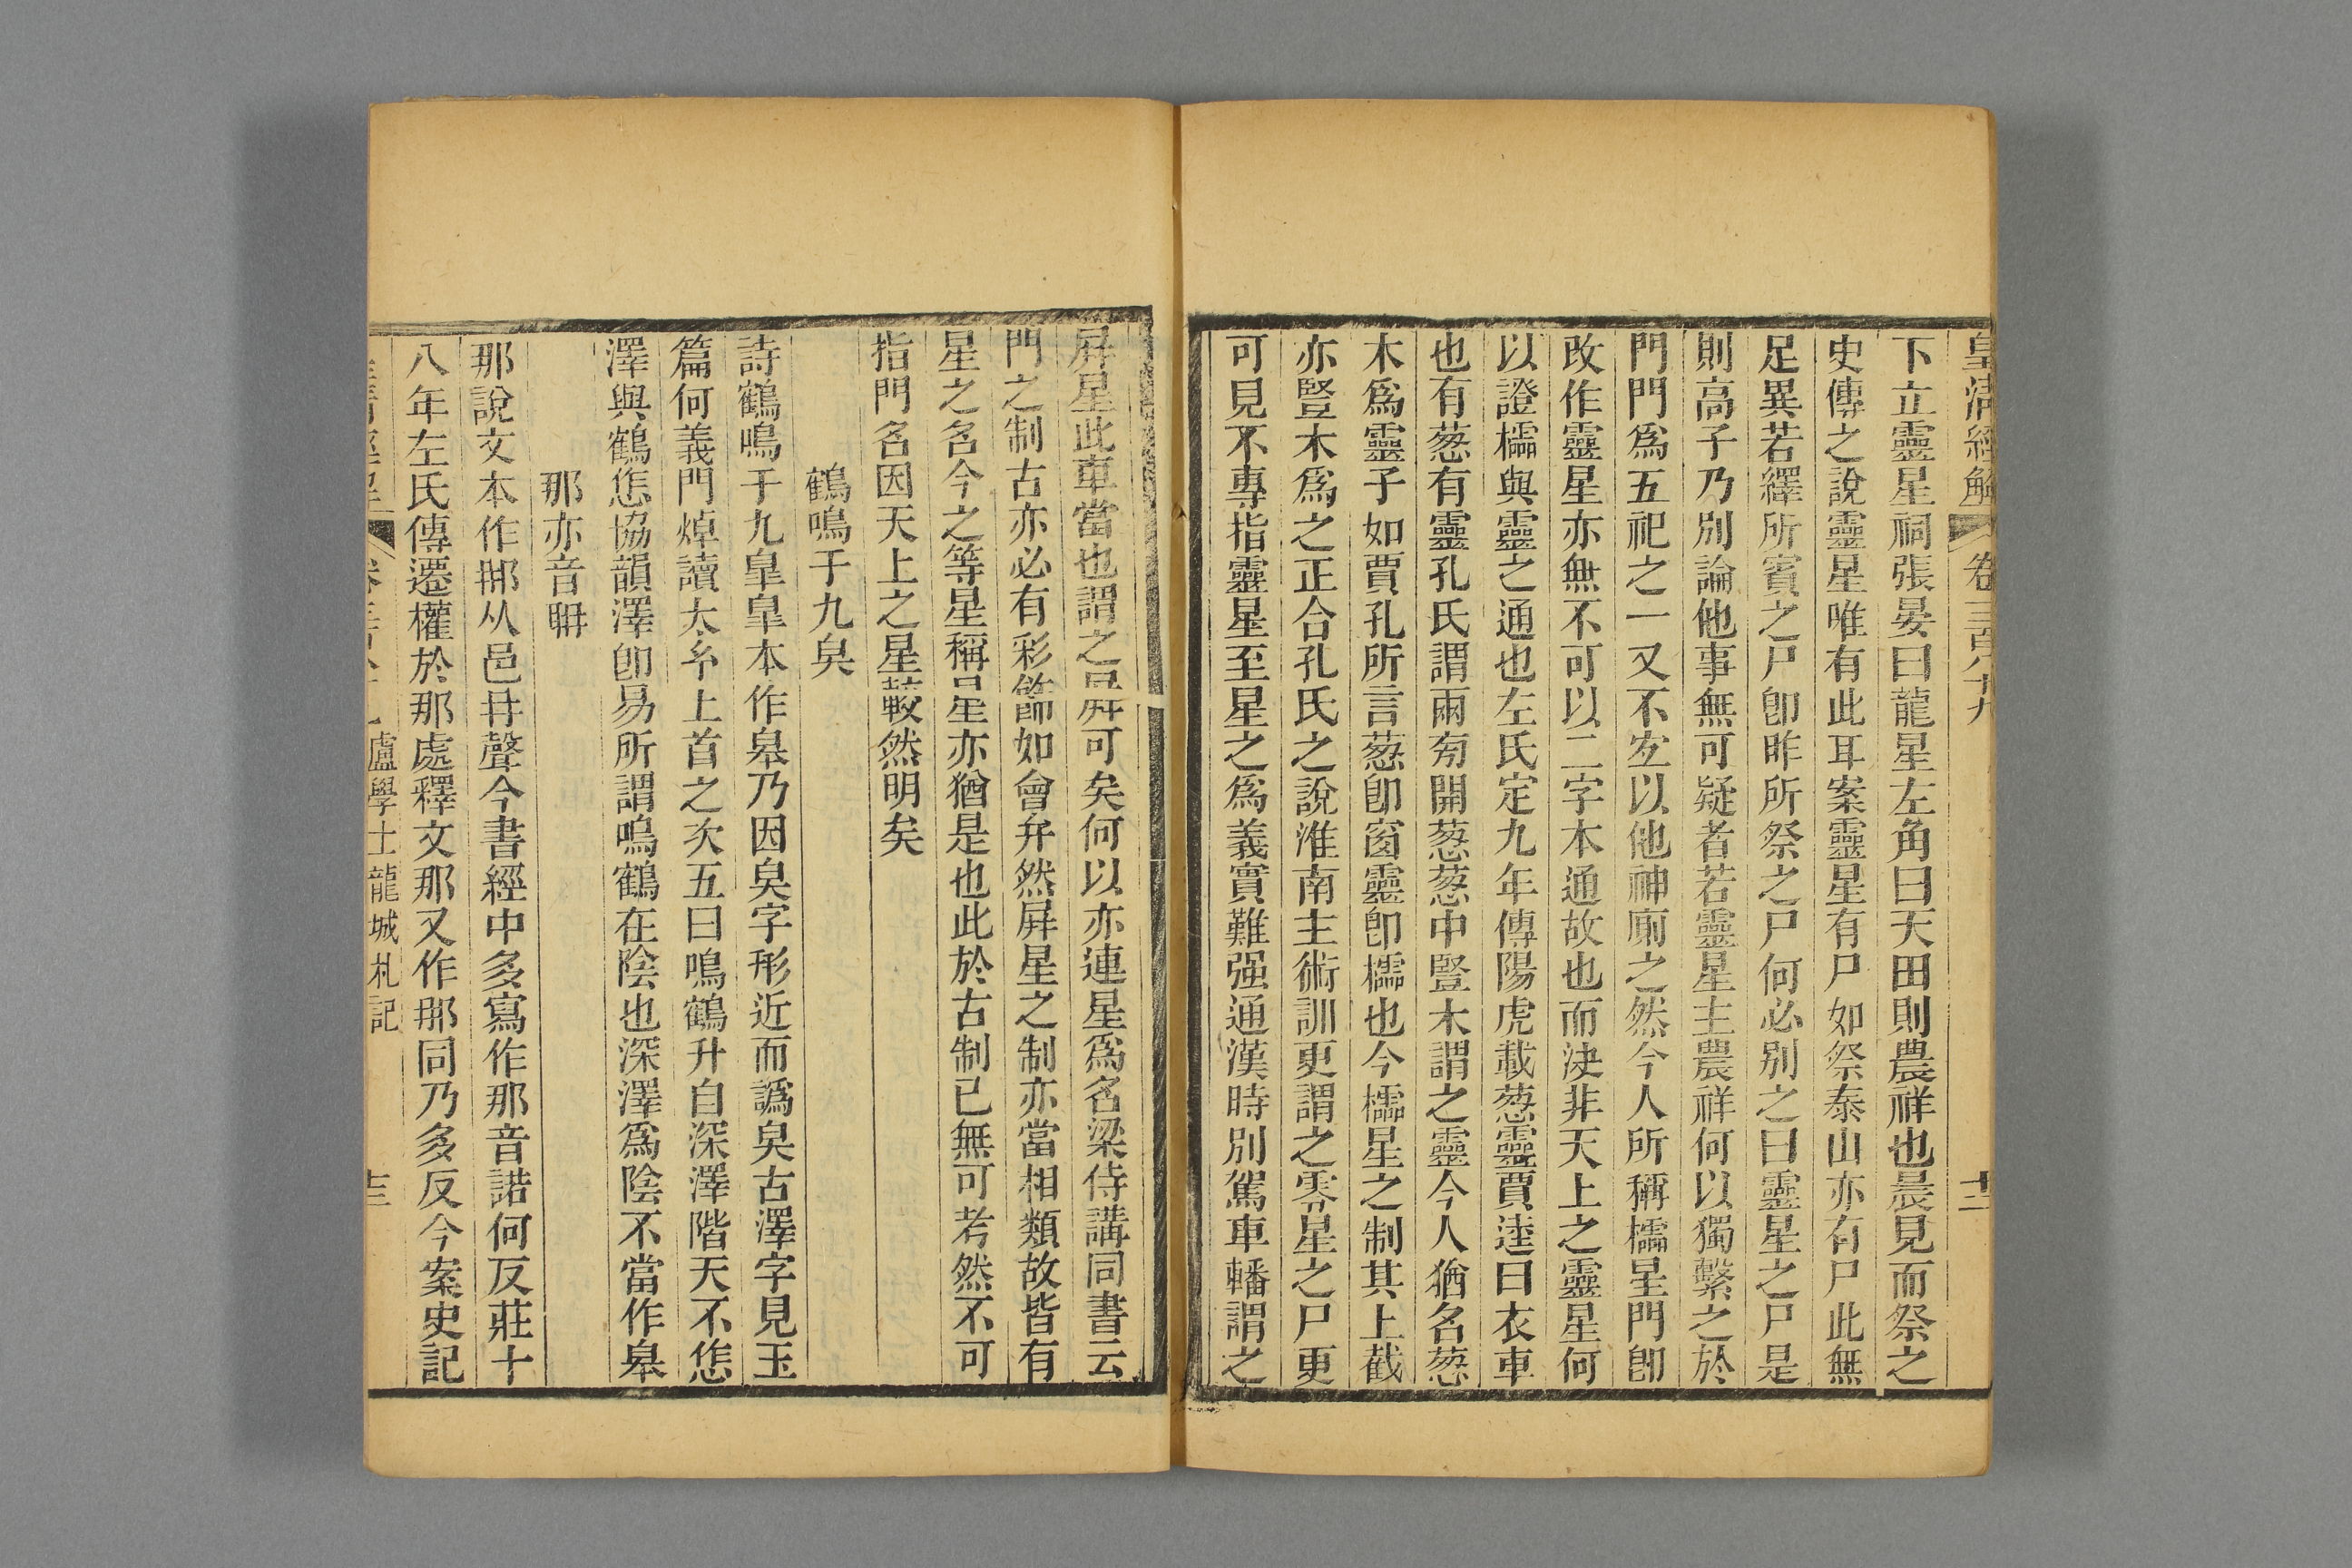 皇清經解 卷三百八十九 十二
下立靈星祠張晏曰龍星左角曰天田則農祥也晨見而祭之
史傳之說靈星唯有此耳案靈星有尸如祭泰山亦有尸此無
足異若繹所賓之尸卽昨所祭之尸何必別之曰靈星之尸是
則高子乃別論他事無可疑者若靈星主農祥何以獨繫之於
門門爲五祀之一又不宐以他神廟之然今人所稱櫺星門卽
改作靈星亦無不可以二字本通故也而決非天上之靈星何
以證櫺與靈之通也左氏定九年傳陽虎載葱靈賈逵曰衣車
也有葱有靈孔氏謂兩旁開葱葱中豎木謂之靈今人猶名葱
木爲靈子如賈孔所言葱卽窗靈卽櫺也今櫺星之制其上截
亦豎木爲之正合孔氏之說淮南主術訓更謂之零星之尸更
可見不專指靈星至星之爲義實難强通漢時別駕車轓謂之
屛星此車當也謂之屛可矣何以亦連星爲名梁侍講同書云
門之制古亦必有彩飾如會弁然屛星之制亦當相類故皆有
星之名今之等星稱星亦猶是也此於古制已無可考然不可
指門名因天上之星較然明矣
鶴鳴于九臯
詩鶴鳴于九皐皐本作皋乃因臭字形近而譌臭古澤字見玉
篇何義門焯讀太玄上首之次五曰鳴鶴升自深澤階天不𢘽
澤與鶴𢘽協韻澤卽易所謂鳴鶴在陰也深澤爲陰不當作皋
那亦音聃
那說文本作𨙻从邑冄聲今書經中多寫作那音諾何反莊十
八年左氏傳遷權於那處釋文那又作𨙻同乃多反今案史記
盧學士龍城札記 十三